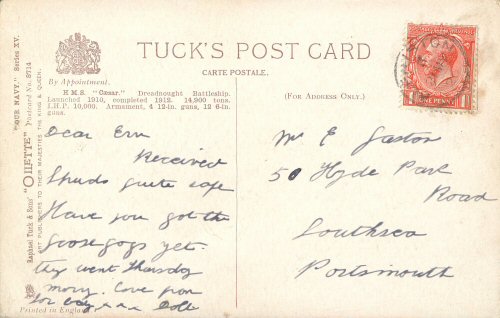 TUCK'S POST CARD
CARTE POSTALE.
By Appointment.
(FOR ADDRESS ONLY.)
H.M.S. "Cæsar." Dreadnought Battleship.
Launched 1910, completed 1912. 14,900 tons.
I.H.P. 10,000. Armament, 4 12-in. guns, 12 6-in.
guns.
"OUR NAVY." Series XV.
Raphael Tuck & Sons' "OILETTE" Postcard No. 8714
ART PUBLISHERS TO THEIR MAJESTIES THE KING & QUEEN.
Printed in England
ONE PENNY
Dear Ern
Received
Spuds quite safe
Have you got the
Goosegogs yet.
they went Thursday
morng. Love from
for baby x x x Doll
Mr E
50 Hyde Park
Road
Southsea
Portsmouth